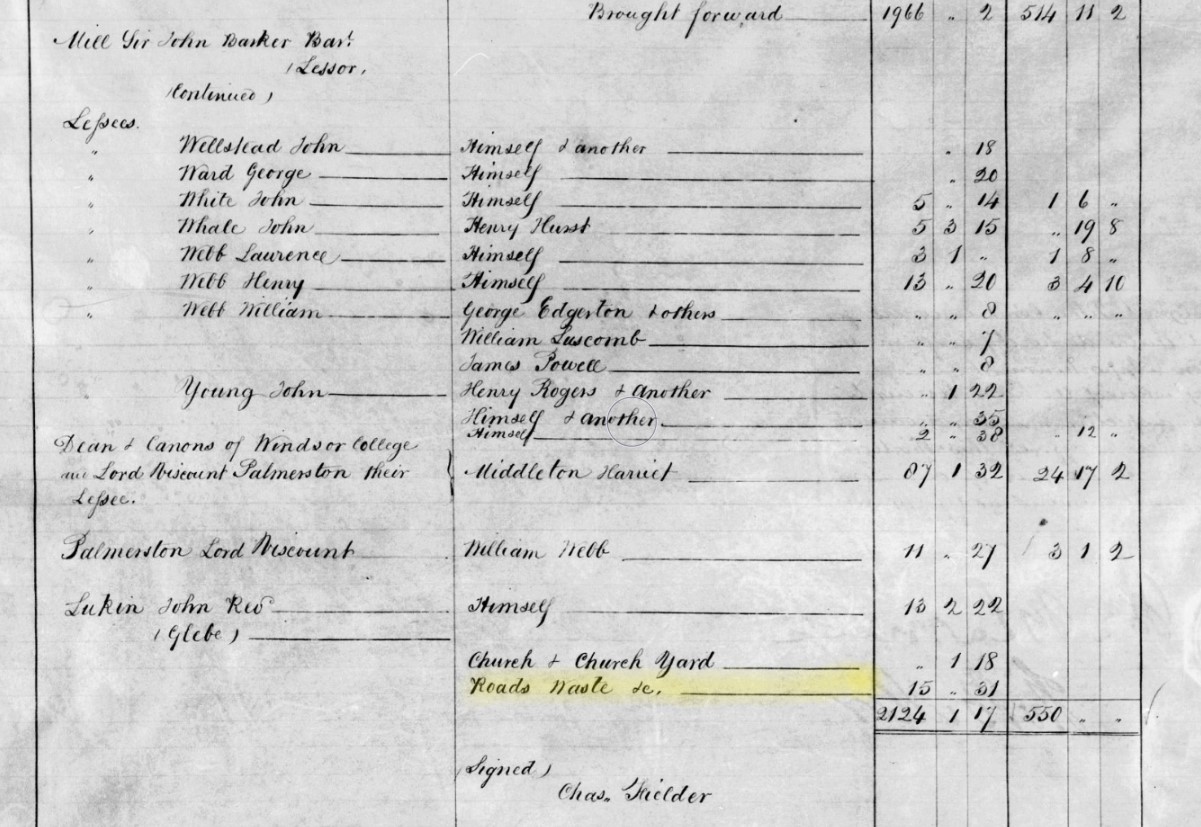 Brought forward 1966 " 2 514 11 2
Mill Sir John Barker Bart
(Lessor)
(Continued)
Lessees.
" Wellstead John Himself & another " 18
" Ward George Himself " 20
" White John Himself 5 " 14 1 6 "
" Whale John Henry Hurst 5 3 15 " 19 8
" Webb Laurence Himself 3 1 " 1 8 "
" Webb Henry Himself 13 " 20 3 4 10
" Webb William George Edgerton & others " " 8 " " "
William Luscomb " " 7
James Powell " " 8
Young John Henry Rogers & another " 1 22
Himself & another " 35
Himself 2 " 38 " 12 "
Dean & Canons of Windsor College
and Lord Viscount Palmerston their Middleton Harriet 87 1 32 24 17 2
Lessee.
Palmerston Lord Viscount William Webb 11 " 27 3 1 2
Lukin John Revd Himself 13 2 22
(Glebe)
Church & Church Yard " 1 18
Roads Waste &c. 15 " 31
2124 1 17 550 " "
Signed)
Chas. Fielder